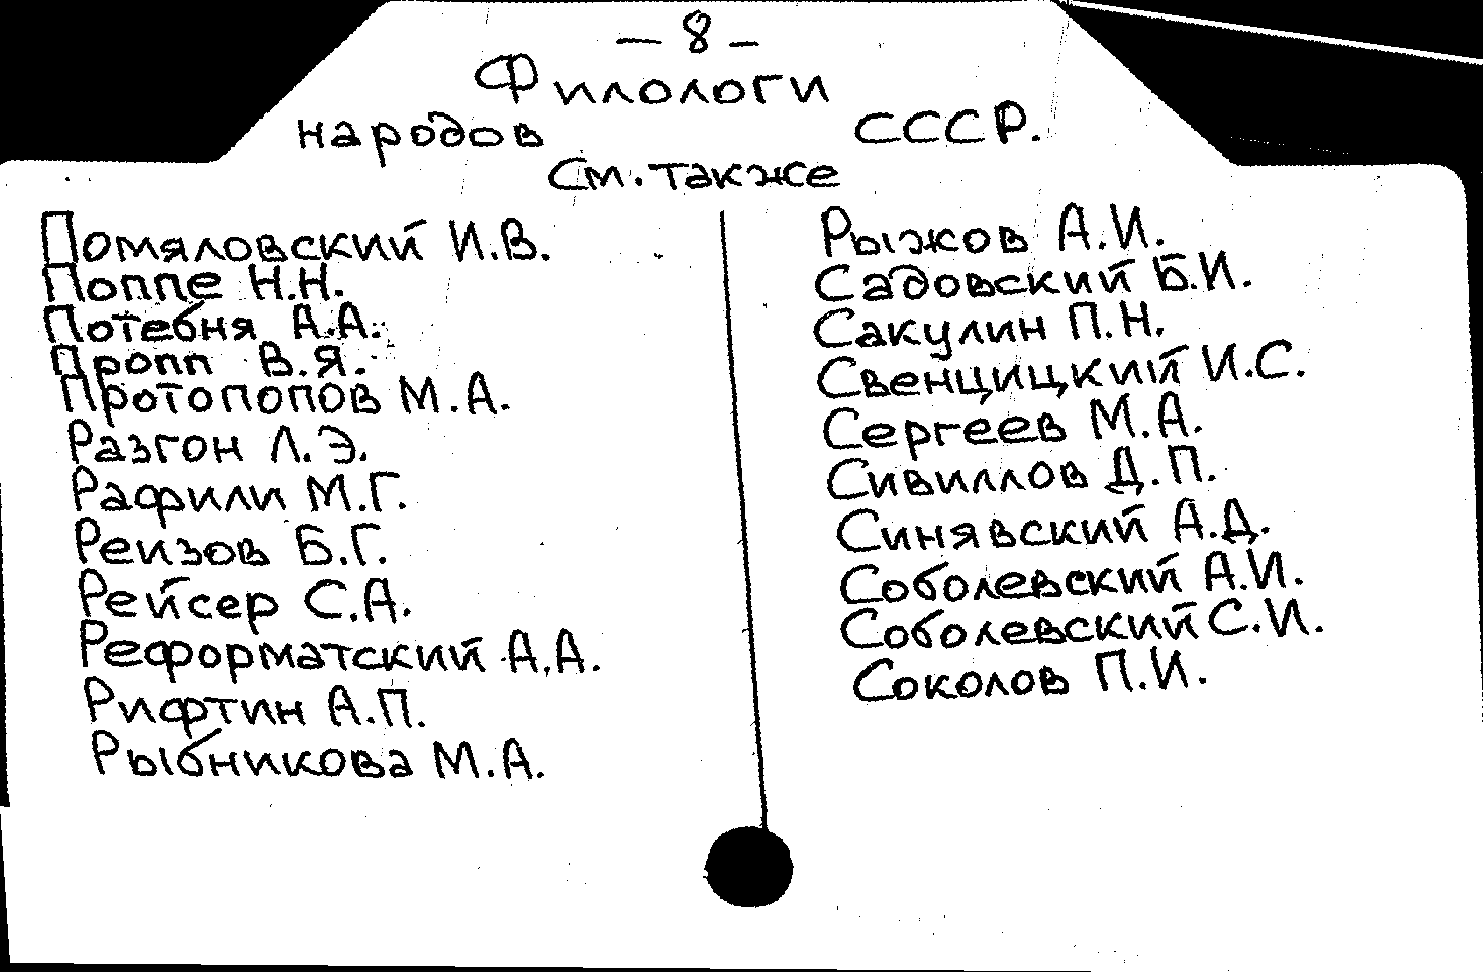 — 8 —
Филологи
народов СССР.
См. также
Помяловский И.В.
Поппе Н.Н.
Потебня А.А.
Пропп В.Я.
Протопопов М.А.
Разгон Л.Э.
Рафили М.Г.
Реизов Б.Г.
Рейсер С.А.
Реформатский А.А.
Рифтин А.П.
Рыбникова М.А.
Рыжков А.И.
Садовский Б.И.
Сакулин П.Н.
Свенцицкий И.С.
Сергеев М.А.
Сивиллов Д.П.
Синявский А.Д.
Соболевский А.И.
Соболевский С.И.
Соколов П.И.